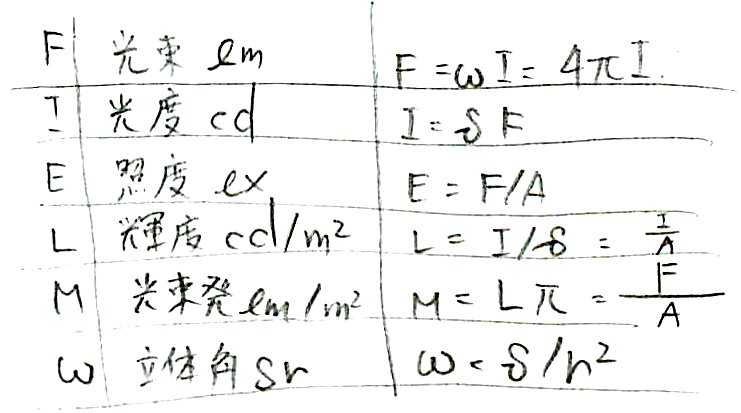 F 光束 lm F = ωI = 4πI.
I 光度 cd I = S F
E 照度 lx E = F/A
L 輝度 cd/m² L = I/S = I/A
M 光束発 lm/m² M = Lπ = F/A
ω 立体角 sr ω = S/r²